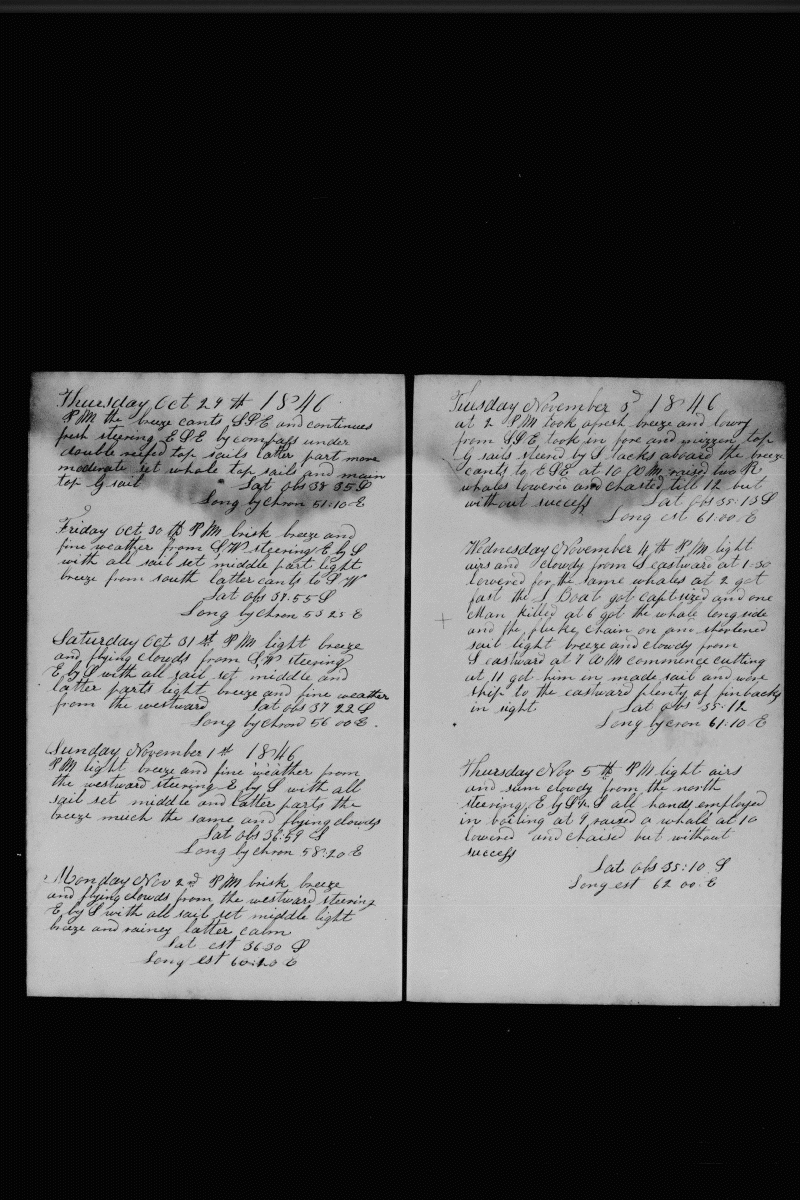 Thursday Oct 29 th 1846
PM the breeze cants SSE and continues
fresh steering ESE by compass under
double reefed top sails latter part more
moderate set whole top sails and main
top G sail Lat obs 38 35 S
Long by chron 51:10 E
Friday Oct 30 th PM brisk breeze and
fine weather from SW steering E by S
with all sail set middle part light
breeze from south latter cants to SW
Lat obs 37:55 S
Long by chron 53 25 E
Saturday Oct 31 st PM light breeze
and flying clouds from SW steering
E by S with all sail set middle and
latter parts light breeze and fine weather
from the westward Lat obs 37 22 S
Long by chron 56 00 E.
Sunday November 1 st 1846
PM light breeze and fine weather from
the westward steering E by S with all
sail set middle and latter parts the
breeze much the same and flying clowds
Lat obs 36:59 S
Long by chron 58:20 E
Monday Nov 2nd PM brisk breeze
and flying clouds from the westward steering
E by S with all sail set middle light
breeze and rainey latter calm
Lat est 36 30 S
Long est E
Tuesday November 3d 1846
at 2 PM took afresh breeze and lowry
from SSE took in fore and mizzen top
G sails steerd by S tacks aboard the breeze
cants to ESE at 10 AM raised two R
whales lowered and chased till 12 but
without success Lat obs 35:13 S
Long est 61:00 E
Wednesday November 4 th PM light
airs and clowdy from S eastward at 1-30
lowered for the same whales at 2 got
fast the S Boat got captsized and one
Man killed at 6 got the whale long side
and the fluke chain on and shortened
sail light breeze and clowdy from
S eastward at 7 AM commence cutting
at 11 got him in made sail and wore
ship to the eastward plenty of finbacks
in sight Lat obs 35:12
Long by cron 61:10 E
Thursday Nov 5 th PM light airs
and sum clowdy from the north
steering E by S all hands employed
in boiling at 9 raised a whale at 10
lowered and chaised but without
success
Lat obs 35:10 S
Long est 62 00 E